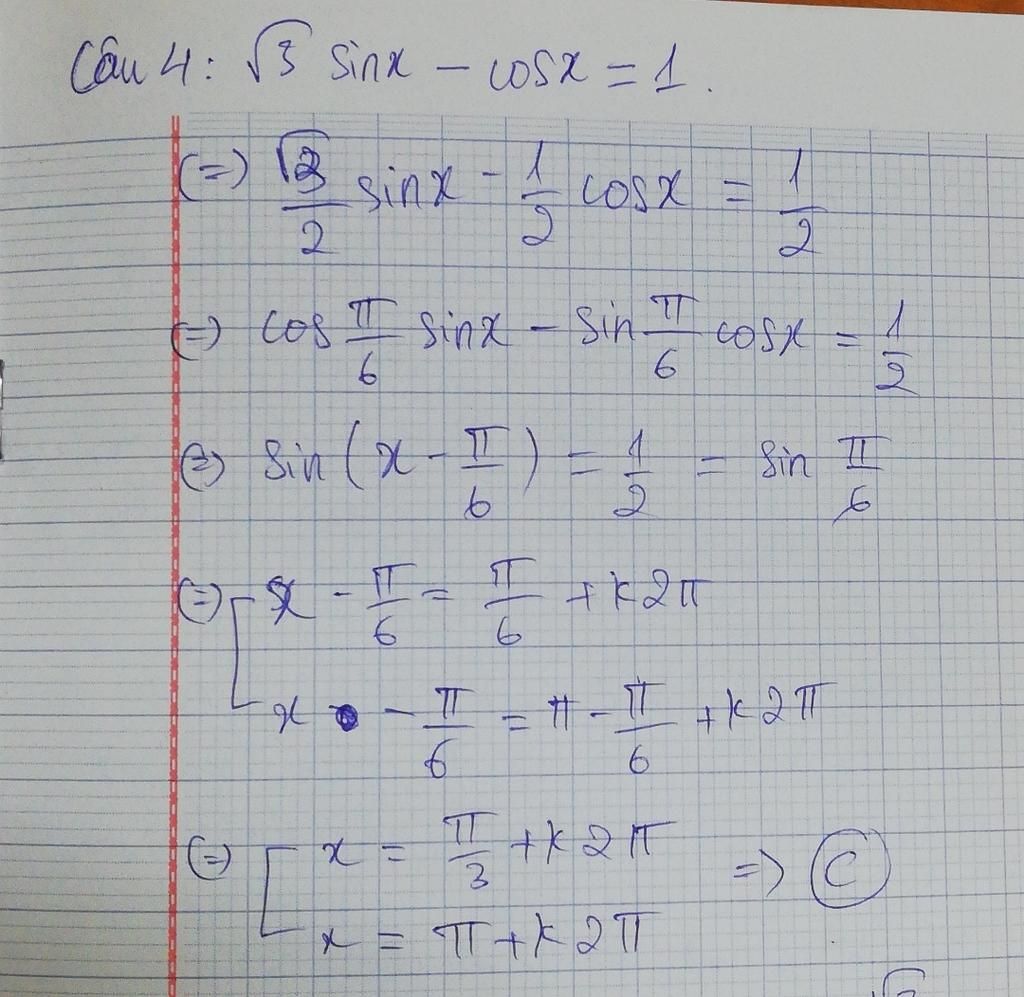 Câu 4: √3 sinx - cosx = 1.
(=) √3/2 sinx - 1/2 cosx = 1/2
(=) cos π/6 sinx - sin π/6 cosx = 1/2
(=) sin(x - π/6) = 1/2 = sin π/6
(=) [ x - π/6 = π/6 + k2π
x - π/6 = π - π/6 + k2π
(=) [ x = π/3 + k2π => C
x = π + k2π